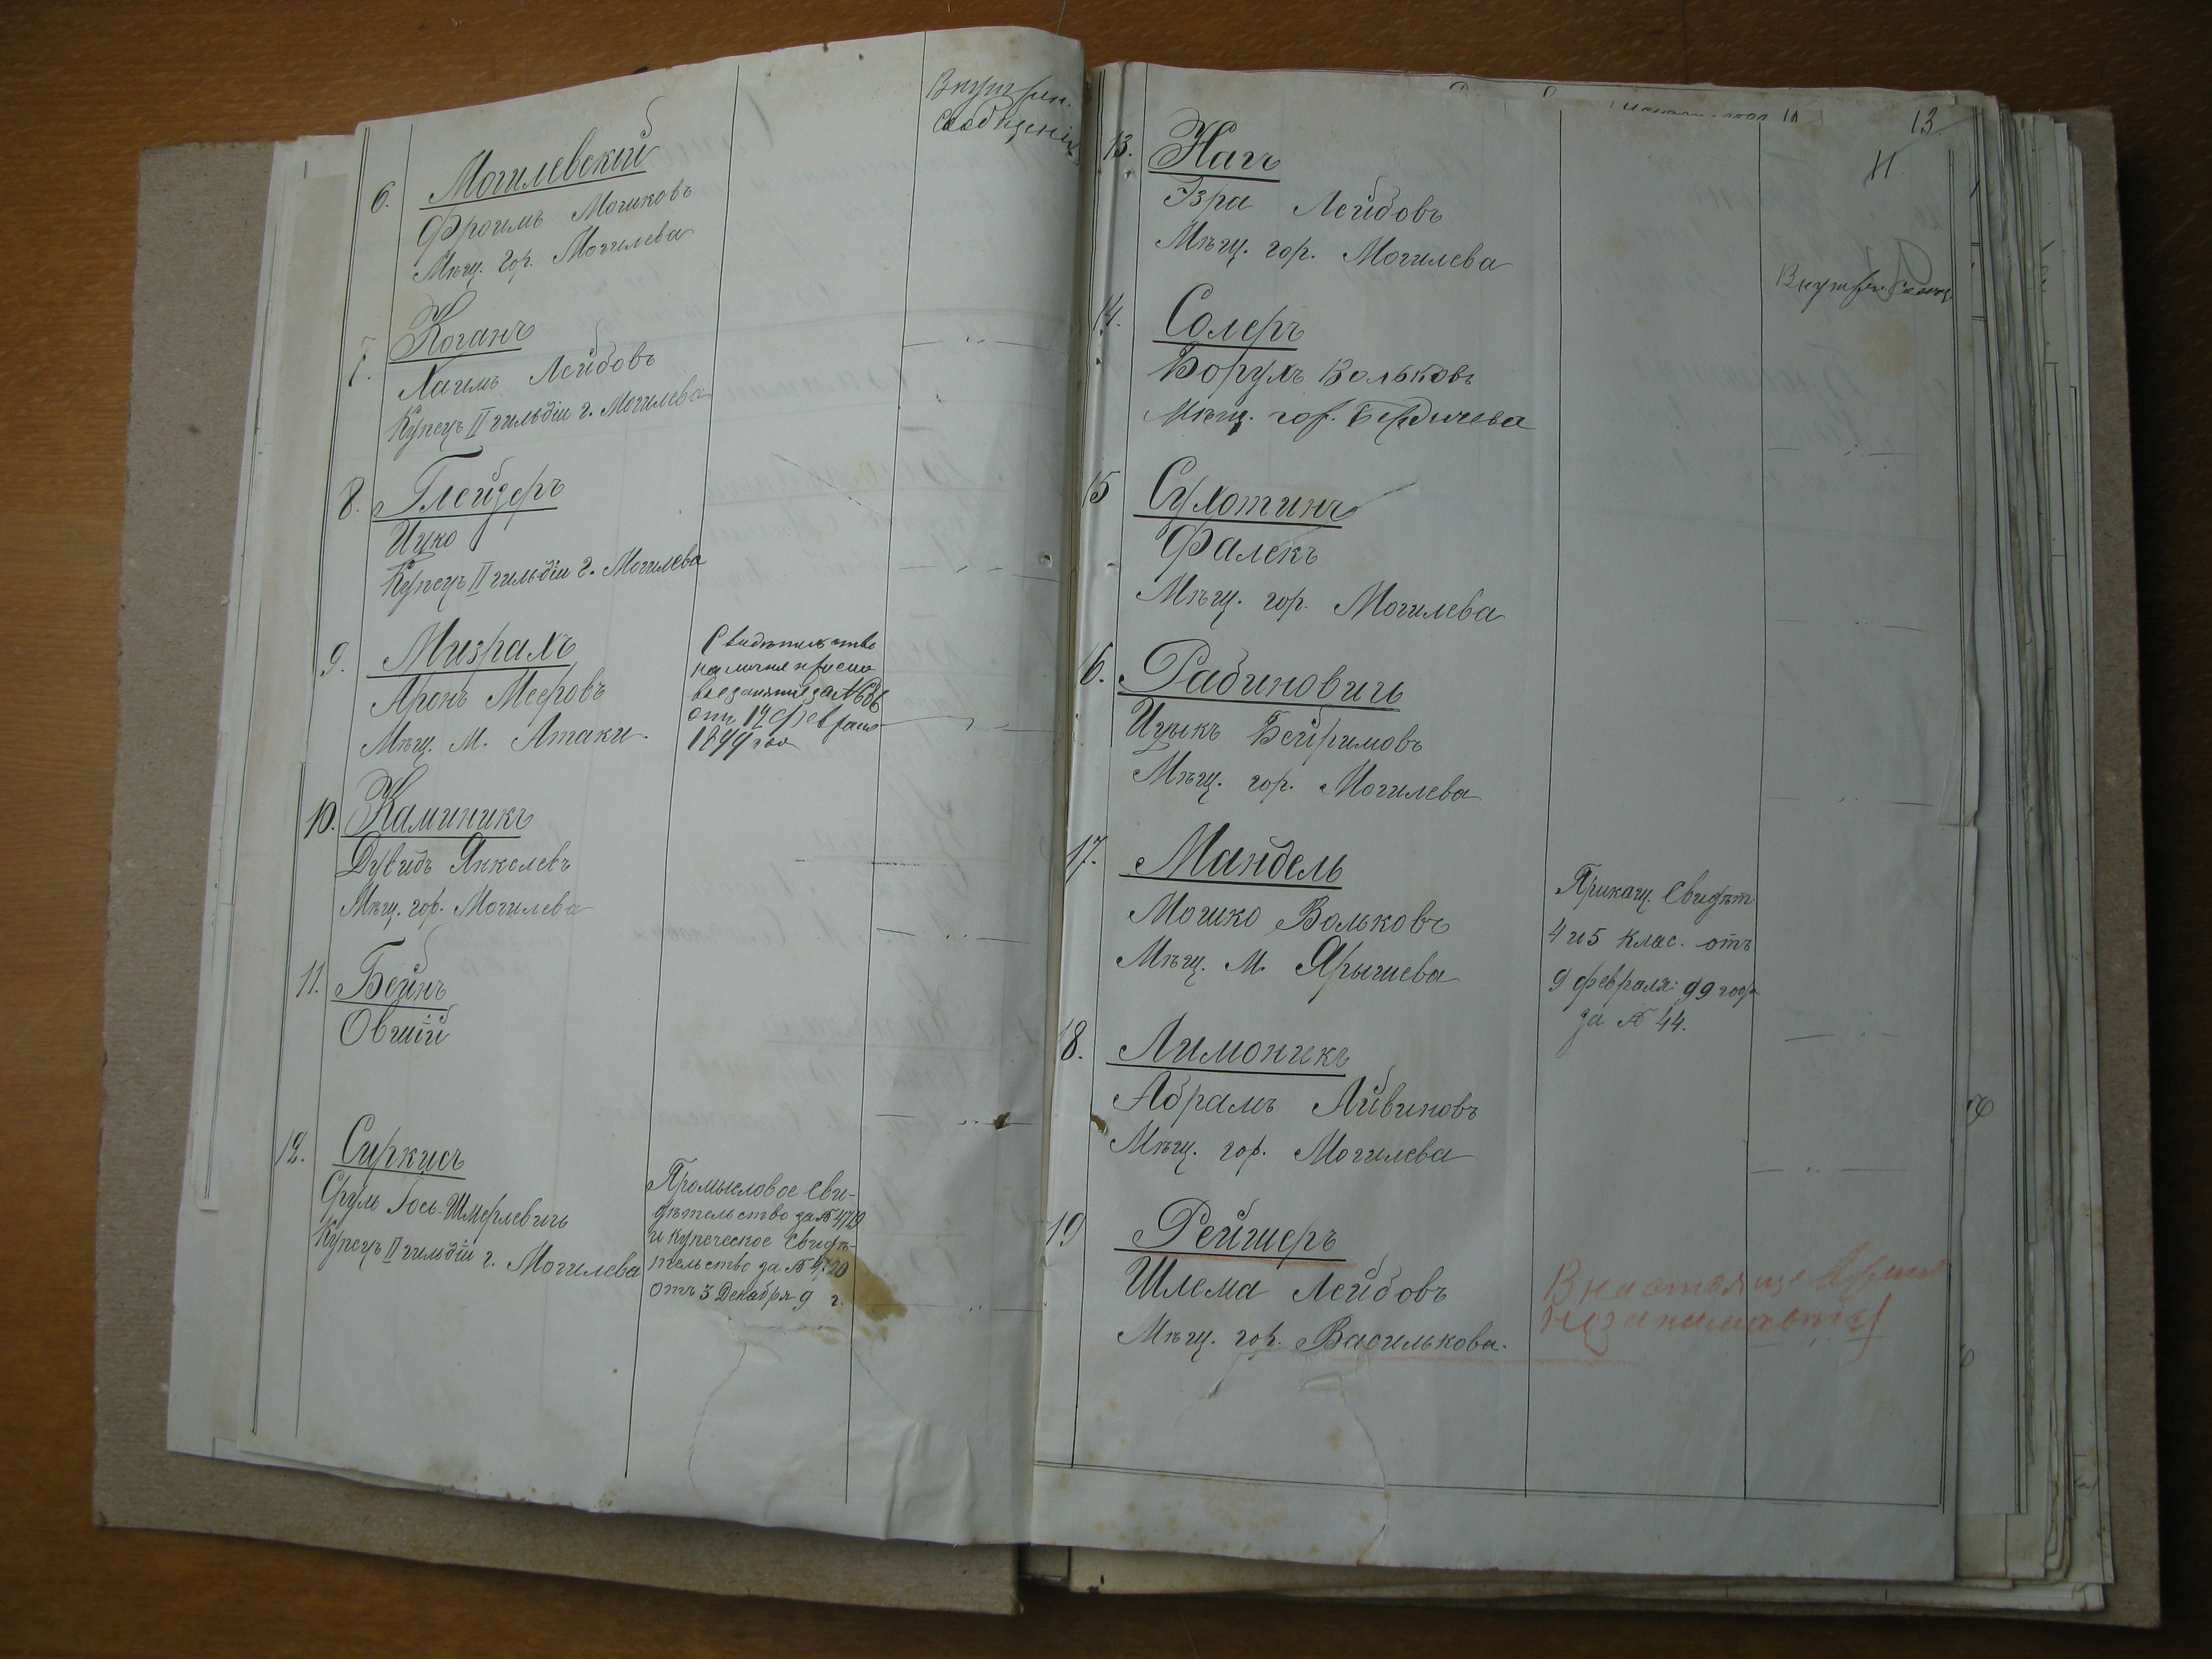 Внутрен.
Сообщенія
6. Могилевскій
Фроимъ Мошковъ
Мѣщ. гор. Могилева
7. Коганъ
Хаимъ Лейбовъ
Купецъ II гильдіи г. Могилева
8. Глейзеръ
Ицко
Купецъ II гильдіи г. Могилева
9. Мизрахъ
Аронъ Мееровъ
Мѣщ. м. Атаки.
Свидѣтельство
на личное
занятіе за № 686
отъ 19 февраля
1899 года
10. Каминикъ
Дувидъ Янкелевъ
Мѣщ. гор. Могилева
11. Бейнъ
Овшій
12. Сиркисъ
Сруль Іось-Шмерлевичъ
Купецъ II гильдіи г. Могилева
Промысловое Сви-
дѣтельство за № 4719
и купеческое Свидѣ-
тельство за № 4720
отъ 3 Декабря 9 г.
13
11
13. Нагъ
Эзра Лейбовъ
Мѣщ. гор. Могилева
Внутрен. Сообщ
14. Солеръ
Борухъ Вольковъ
Мѣщ. гор. Бердичева
15 Сухотинъ
Фалекъ
Мѣщ. гор. Могилева
16. Рабиновичъ
Ицыкъ Бейримовъ
Мѣщ. гор. Могилева
17. Мандель
Мошко Вольковъ
Мѣщ. м. Ярышева
Приказч. Свидѣт.
4 и 5 клас. отъ
9 февраля 99 года
за № 44.
18. Лимоникъ
Абрамъ Айвиновъ
Мѣщ. гор. Могилева
19 Рейшеръ
Шлема Лейбовъ
Мѣщ. гор. Василькова.
В настояще время
незанимается